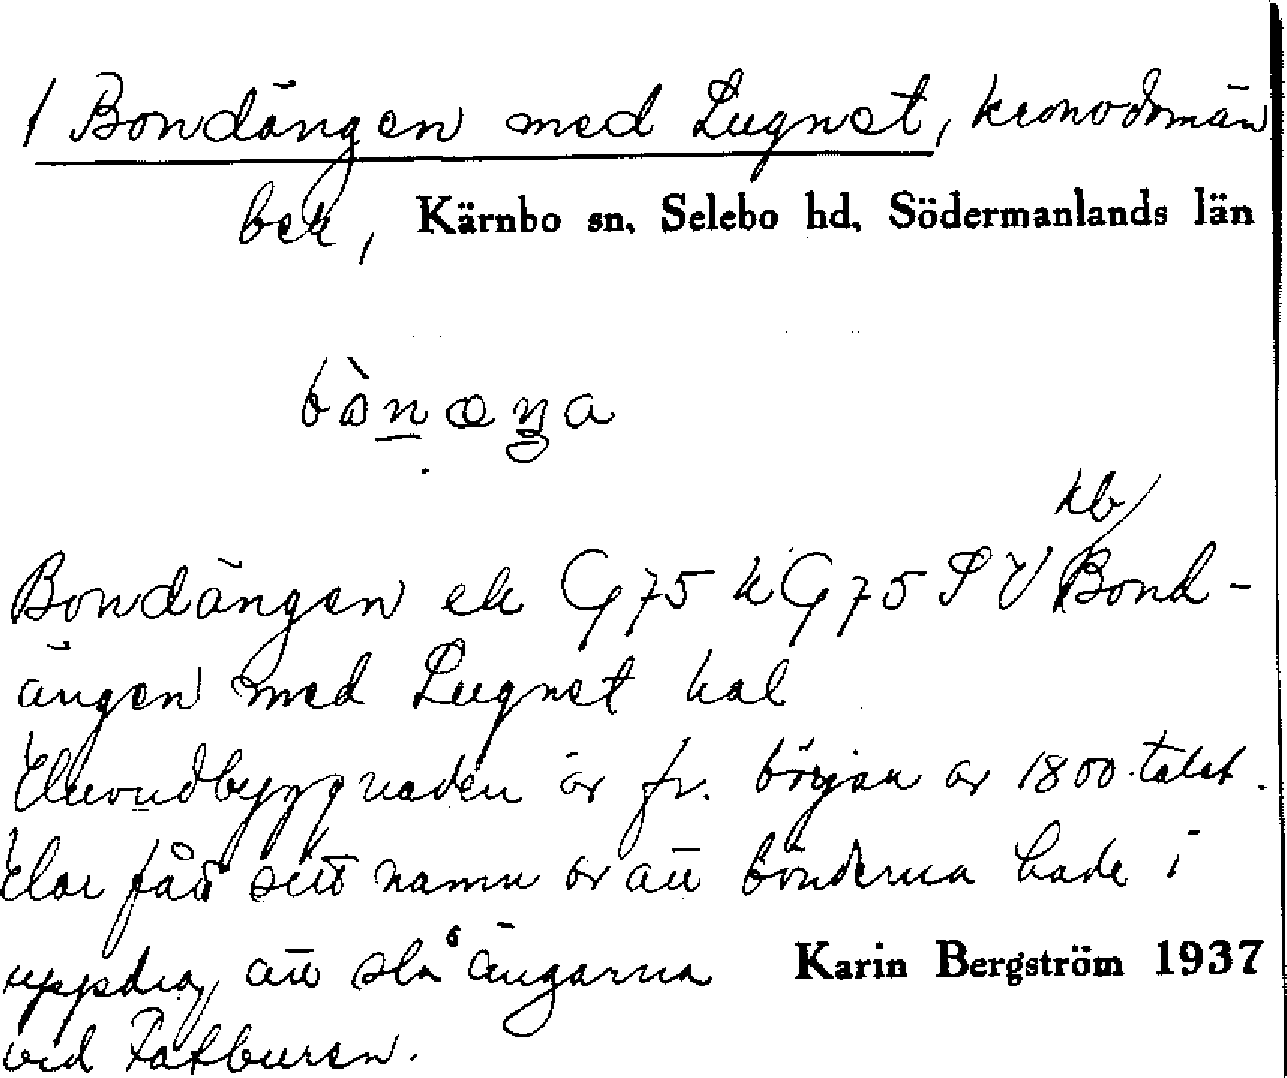 1 Bondängen med Lugnet, kronodomän
bek, Kärnbo sn, Selebo hd, Södermanlands län
bònæŋa
kb/
Bondängen ek G75 k G75 S V Bond-
ängen med Lugnet kal
Huvudbyggnaden är fr. början av 1800-talet.
Har fått sitt namn av att bönderna hade i
uppdrag att slå ängarna Karin Bergström 1937
vid Fatburen.